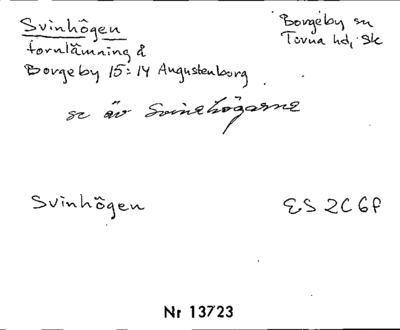 Svinhögen
Borgeby sn
fornlämning å
Torna hd, Sk
Borgeby 15:14 Augustenborg
se äv Svinehögarne
Svinhögen
ES 2C 6f
Nr 13723